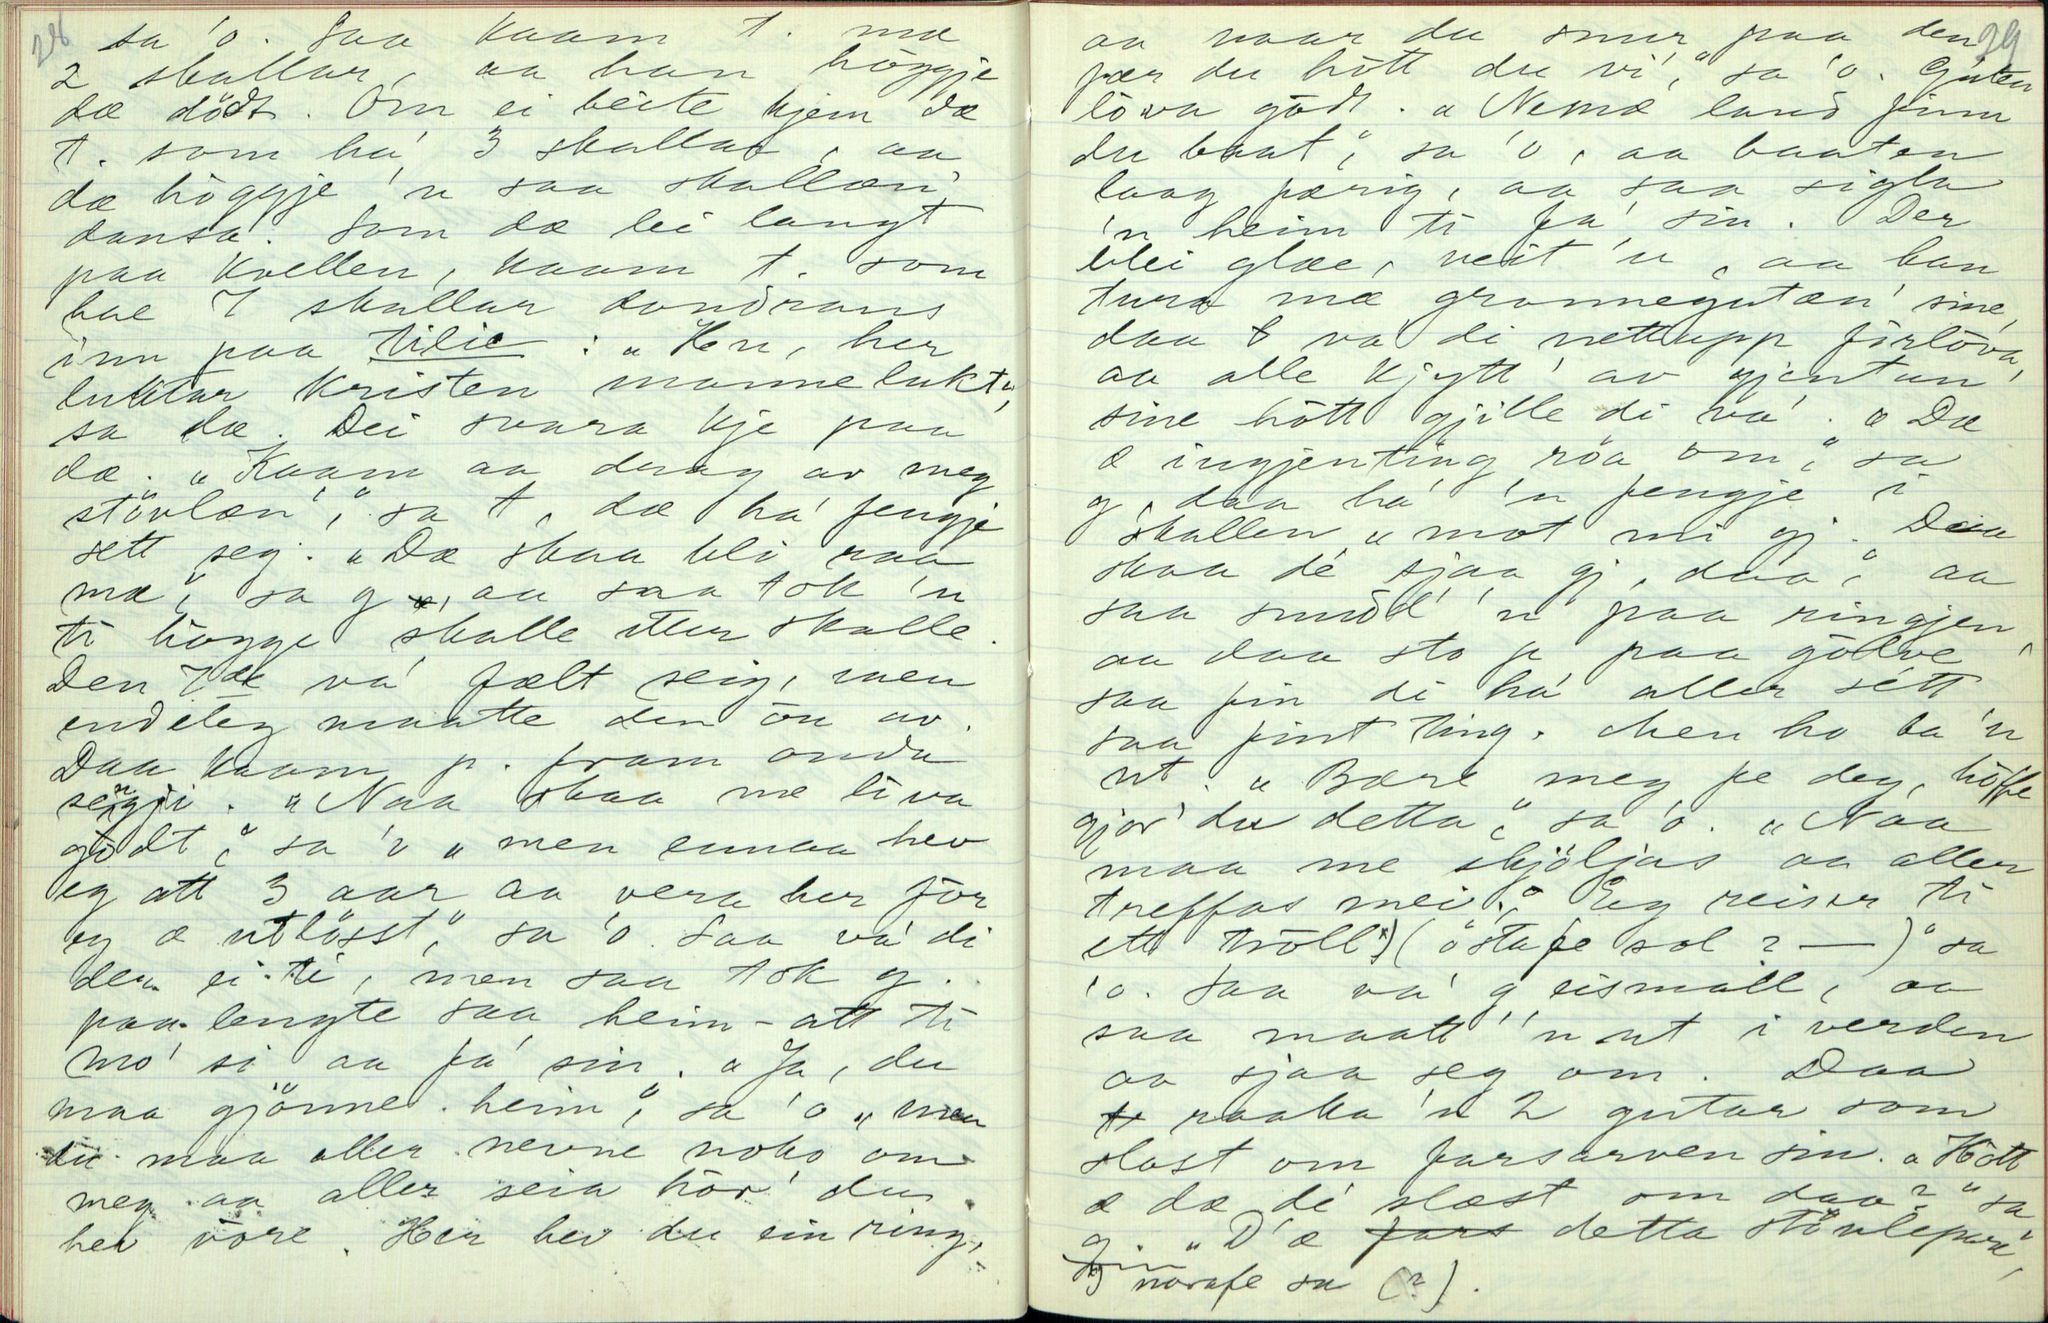 28
sa 'o. Saa kaam t. mæ
2 skallar, aa han höggje
dæ dödt. Om ei beite kjem dæ
t. som ha' 3 skallar, aa
dæ höggje 'n saa skallæn'
dansa. Som dæ lei langt
paa kvellen, kaam t. som
hae 7 skallar dondrans
inn paa tilie: "Hu, her
luktar kristen mannelukt",
sa dæ. Dei svara kje paa
dæ. "Kaam aa drag av meg
stövlæn'," sa t, dæ ha' fengje
sett seg. "Dæ skaa bli raa
mæ," sa g, aa saa tok 'n
ti högge skalle etter skalle.
Den 7de va' fælt seig, men
endeleg maatte den ou av.
Daa kaam p. fram onda
sengji. "Naa skaa me liva
godt," sa 'o "men ennaa hev
eg att 3 aar aa vera her för
eg æ utlösst," sa 'o. Saa va' di
der ei ti, men saa tok g.
paa lengte saa heim-att ti
mo' si aa fa' sin. "Ja, du
maa gjönne heim," sa 'o "men
du maa aller nevne noko om
meg aa aller seia hör' du
hev vöre. Her hev du ein ring,
29
aa naar du snur paa den
fær du hött du vi'," sa 'o. Guten
löva godt. "Nemæ land finn
du baat," sa 'o, aa baaten
laag færig, aa saa sigla
'n heim ti fa' sin. Der
blei glæe, veit 'n, aa han
tura mæ grannegutæn' sine,
daa va' di nettupp förlöva,
aa alle kjytt' av gjentun'
sine hött gjille di va'. "Dæ
æ ingjenting röa om," sa
g, daa ha' 'n fengje i
skallen "mot mi gj. Daa
skaa dé sjaa gj, daa," aa
saa snudd' 'n paa ringjen,
aa daa sto p paa gölve
saa fin di ha' aller sett
saa fint ting. Men ho ba 'n
ut. "Bære meg fe deg, höffe
gjor' du detta," sa 'o. "Naa
maa me skjöljas aa aller
treffas mei." Eg reiser ti
ett tröll*) (östafe sol ? —)" sa
'o. Saa va' g eismall, aa
saa maatt' 'n ut i verden
aa sjaa seg om. Daa
raaka 'n 2 gutar som
slost om farsarven sin. "Hött
æ dæ dé slæst om daa?" sa
g. "D'æ detta stövlepare",
*) norafe sa (?).